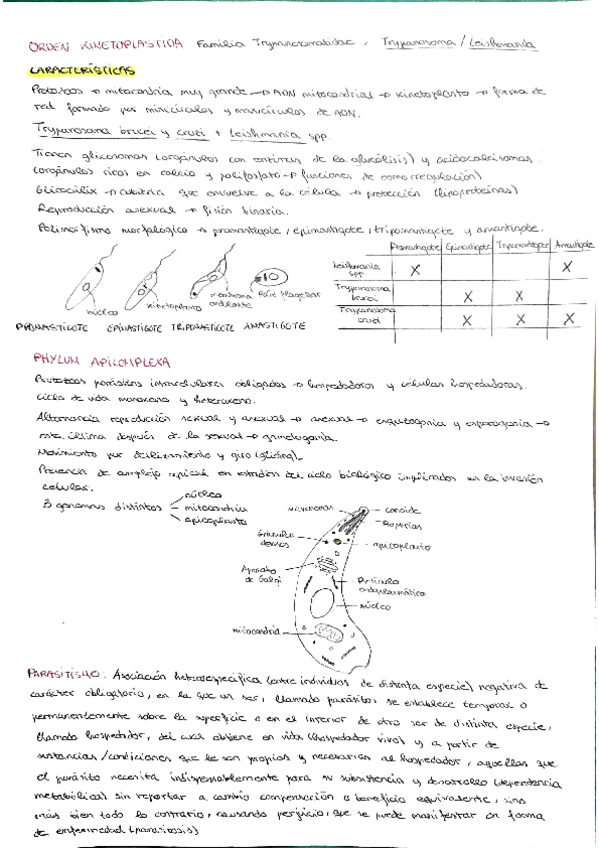 ORDEN KINETOPLASTIDA Familia Trypanosomatidae, Trypanosoma / Leishmania
CARACTERÍSTICAS
Protozoos → mitocondria muy grande → ADN mitocondrial → kinetoplasto → forma de
red formado por minicírculos y maxicírculos de ADN.
Trypanosoma brucei y cruzi + Leishmania spp.
Tienen glicosomas (orgánulos con enzimas de la glucólisis) y acidocalcisomas
(orgánulos ricos en calcio y polifosfato → funciones de osmorregulación)
Glicocálix → cubierta que envuelve a la célula → protección (lipoproteínas)
Reproducción asexual → fisión binaria.
Polimorfismo morfológico → promastigote, epimastigote, tripomastigote y amastigote.
Promastigote Epimastigote Tripomastigote Amastigote
Leishmania spp X X
Trypanosoma brucei X X
Trypanosoma cruzi X X X
núcleo kinetoplasto membrana ondulante flagelar
PROMASTIGOTE EPIMASTIGOTE TRIPOMASTIGOTE AMASTIGOTE
PHYLUM APICOMPLEXA
Protozoos parásitos intracelulares obligados → hospedadores y células hospedadoras.
Ciclo de vida monoxeno y heteroxeno.
Alternancia reproducción sexual y asexual → asexual → esquizogonia y esporogonia →
esta última después de la sexual → gametogonia.
Movimiento por deslizamiento y giro (gliding).
Presencia de complejo apical en estadios del ciclo biológico implicados en la invasión
celular.
3 genomas distintos
núcleo
mitocondria
apicoplasto
micronemas
conoide
Roptrias
Gránulos densos
apicoplasto
Aparato de Golgi
Retículo endoplasmático
núcleo
mitocondria
PARASITISMO: Asociación heteroespecífica (entre individuos de distinta especie) negativa de
carácter obligatorio, en la que un ser, llamado parásito, se establece temporal o
permanentemente sobre la superficie o en el interior de otro ser de distinta especie,
llamado hospedador, del cual obtiene en vida (hospedador vivo) y a partir de
sustancias/condiciones que le son propias y necesarias al hospedador, aquellas que
el parásito necesita indispensablemente para su subsistencia y desarrollo (dependencia
metabólica) sin reportar a cambio compensación o beneficio equivalente, sino
más bien todo lo contrario, causando perjuicio, que se puede manifestar en forma
de enfermedad (parasitosis)